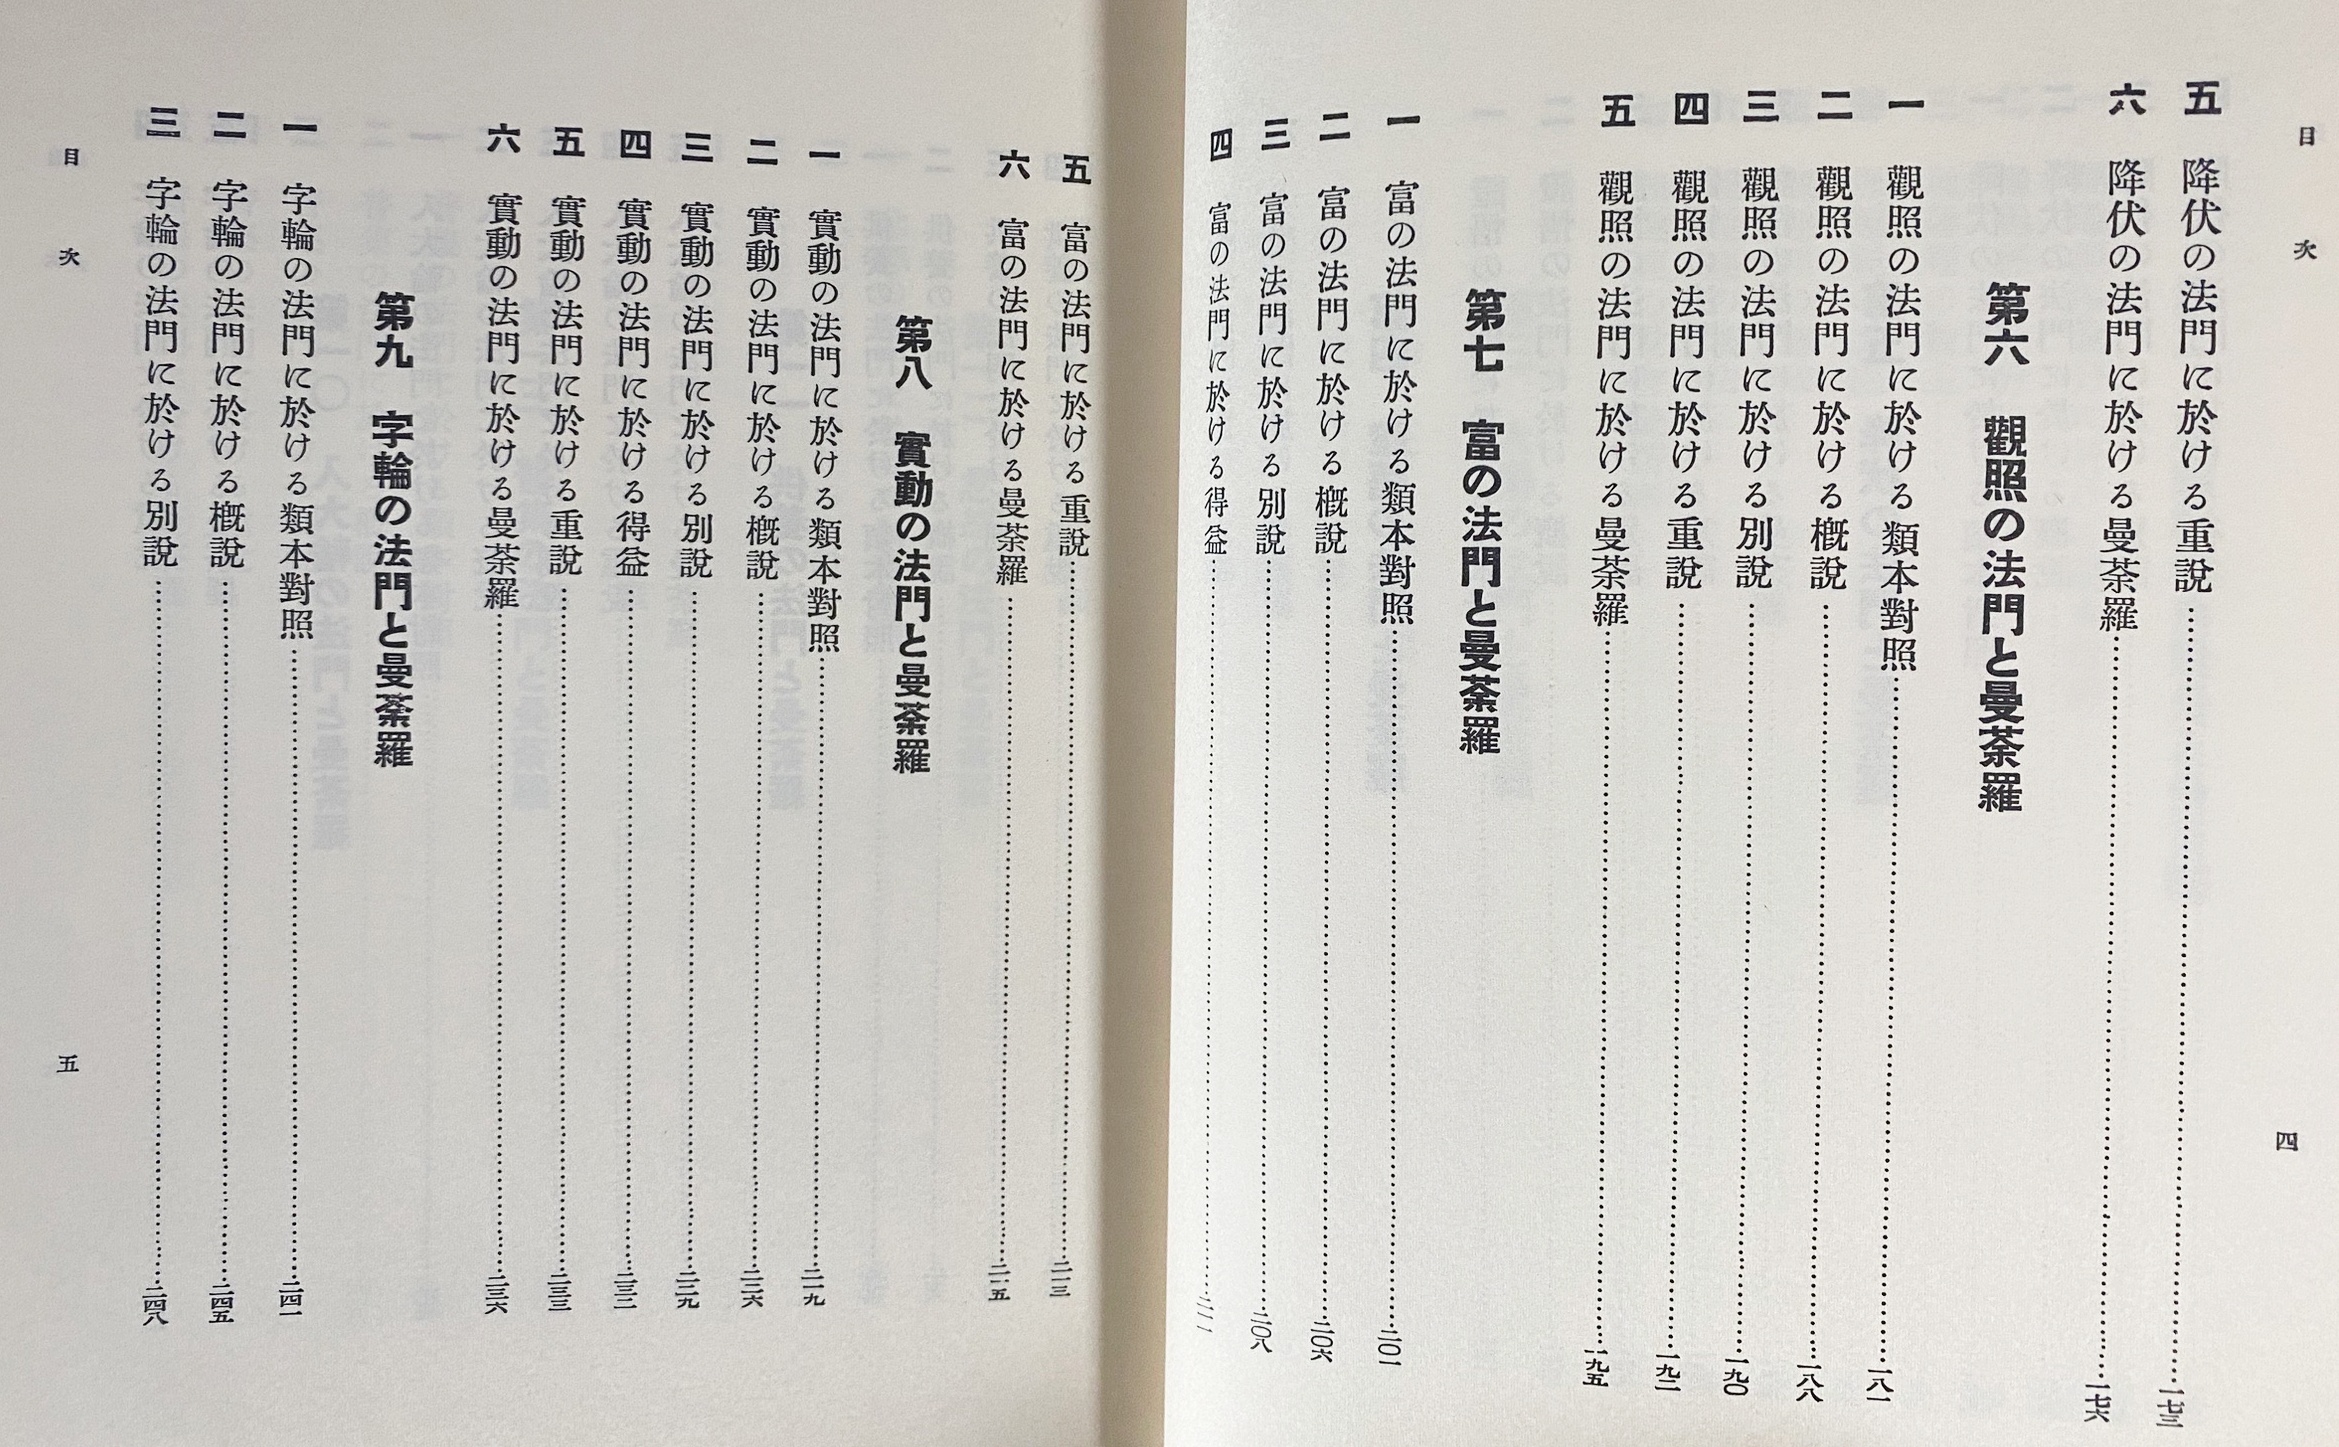 目次
四
五 降伏の法門に於ける重說……一七三
六 降伏の法門に於ける曼荼羅……一七六
第六 觀照の法門と曼荼羅
一 觀照の法門に於ける類本對照……一八一
二 觀照の法門に於ける槪說……一八八
三 觀照の法門に於ける別說……一九〇
四 觀照の法門に於ける重說……一九二
五 觀照の法門に於ける曼荼羅……一九五
第七 富の法門と曼荼羅
一 富の法門に於ける類本對照……二〇一
二 富の法門に於ける槪說……二〇六
三 富の法門に於ける別說……二〇八
四 富の法門に於ける得益……二一一
五 富の法門に於ける重說……二一三
六 富の法門に於ける曼荼羅……二一五
第八 實動の法門と曼荼羅
一 實動の法門に於ける類本對照……二一九
二 實動の法門に於ける槪說……二二六
三 實動の法門に於ける別說……二二九
四 實動の法門に於ける得益……二三二
五 實動の法門に於ける重說……二三三
六 實動の法門に於ける曼荼羅……二三六
第九 字輪の法門と曼荼羅
一 字輪の法門に於ける類本對照……二四一
二 字輪の法門に於ける槪說……二四五
三 字輪の法門に於ける別說……二四八
目次
五